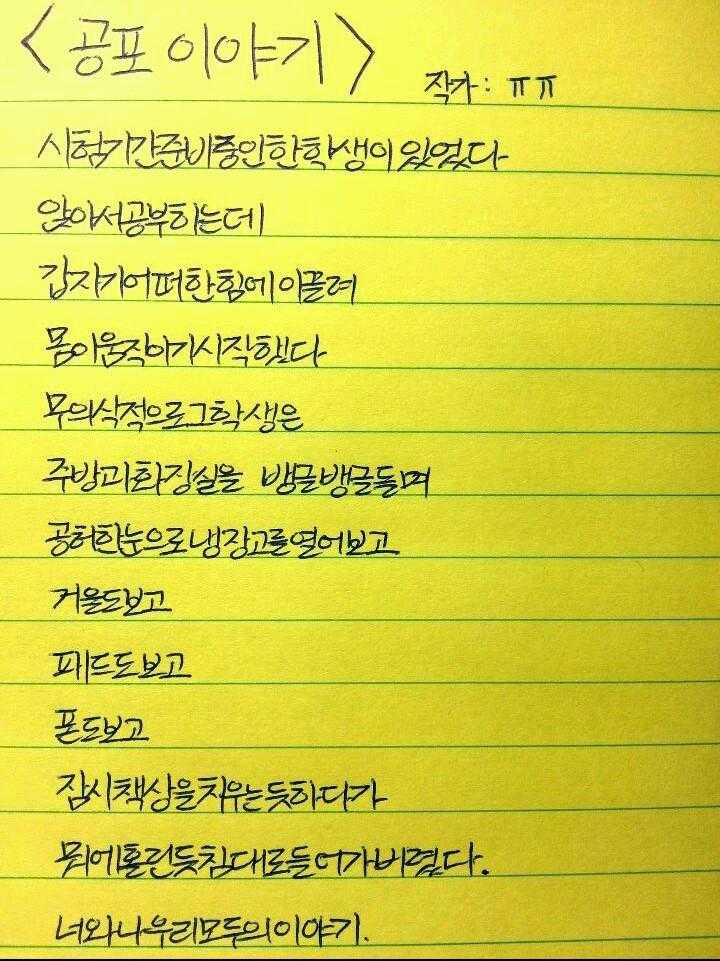 <공포 이야기>
작가: ㅠㅠ
시험기간준비중인한학생이있었다
앉아서공부하는데
갑자기어떠한힘에이끌려
몸이움직이기시작했다
무의식적으로그학생은
주방과화장실을 뱅글뱅글돌며
공허한눈으로냉장고를열어보고
거울도보고
패드도보고
폰도보고
잠시책상을치우는듯하다가
뭐에홀린듯침대로들어가버렸다.
너와나우리모두의이야기.